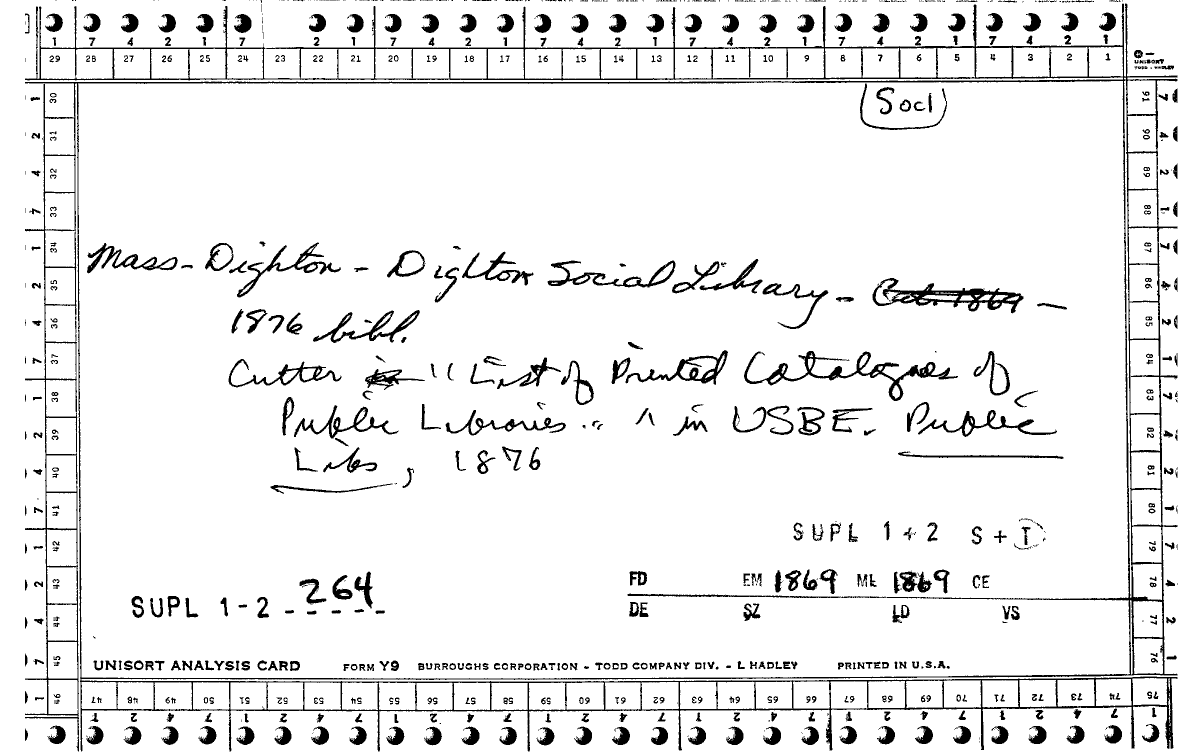 7 4 2 1 7 2 1 7 4 2 1 7 4 2 1 7 4 2 1 7 4 2 1 7 4 2 1
29 28 27 26 25 24 23 22 21 20 19 18 17 16 15 14 13 12 11 10 9 8 7 6 5 4 3 2 1
UNISORT
TODD - HADLEY
Socl
Mass - Dighton - Dighton Social Library - Cat. 1869 -
1876 bibl.
Cutter in "List of Printed Catalogues of
Public Libraries .." ^ in USBE. Public
Libs, 1876
SUPL 1 + 2 S + T
FD EM 1869 ML 1869 CE
SUPL 1 - 2 - 264
DE SZ LD VS
UNISORT ANALYSIS CARD FORM Y9 BURROUGHS CORPORATION - TODD COMPANY DIV. - L HADLEY PRINTED IN U.S.A.
30 31 32 33 34 35 36 37 38 39 40 41 42 43 44 45 46
47 48 49 50 51 52 53 54 55 56 57 58 59 60 61 62 63 64 65 66 67 68 69 70 71 72 73 74 75
91 90 89 88 87 86 85 84 83 82 81 80 79 78 77 76